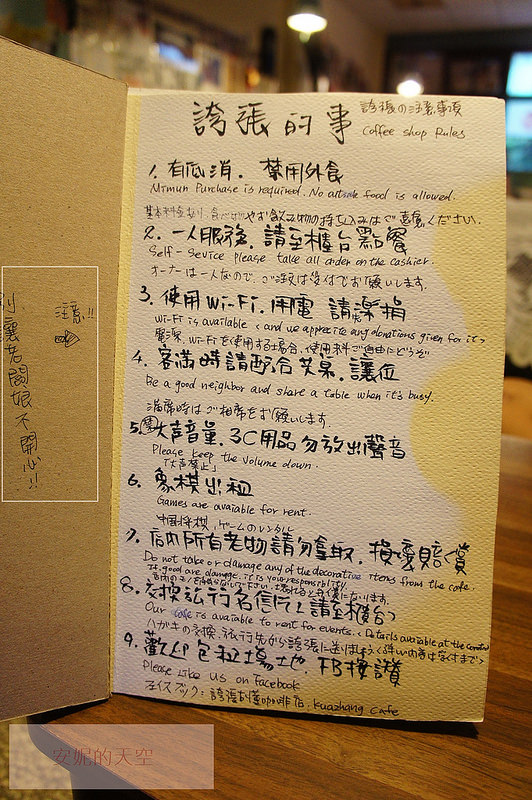 誇張的事
誇張の注意事項
Coffee shop Rules
1. 有低消. 禁用外食
Mimun Purchase is required. No outside food is allowed.
基本料金あり. 食べ物やお飲み物の持ち込みはご遠慮ください.
2. 一人服務. 請至櫃台點餐
Self-Sevice please take all order on the cashier.
オーナーは一人なので、ご注文は受付でお願いします.
3. 使用Wi-Fi. 用電 請樂捐
Wi-Fi is available (and we apprecite any donations given for it)
電源. Wi-Fiを使用する場合. 使用料ご自由にどうぞ
4. 客滿時請配合共桌. 讓位
Be a good neighbor and share a table when it's busy.
満席時はご相席をお願いします.
5. 大声音量. 3C用品勿放出聲音
Please keep the volume down.
「大声禁止」
6. 象棋出租
Games are avaiable for rent.
中国将棋. ゲームのレンタル
7. 店內所有老物請勿拿取. 損壞賠償
Do not take or damage any of the decorative items from the cafe.
If good are damage. it is your responsibility.
8. 交換旅行名信片!請至櫃台
Our cafe is avaiable to rent for events. (Details avaiable at the counter)
9. 歡迎包租場地. FB按讚
Please Like Us on Facebook
フェイスブック: 誇張古懂咖啡店. Kuazhang Cafe
注意!!
別讓老闆娘不開心!!
安妮的天空